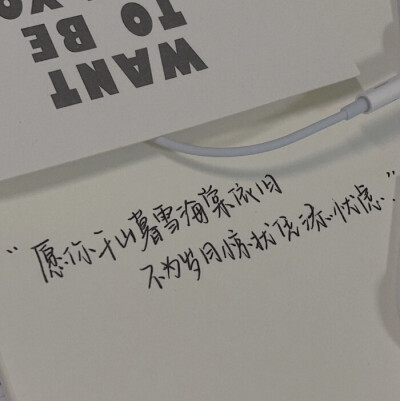 WANT
TO BE
"愿你千山暮雪海棠依旧
不为岁月惊扰凭添忧虑."